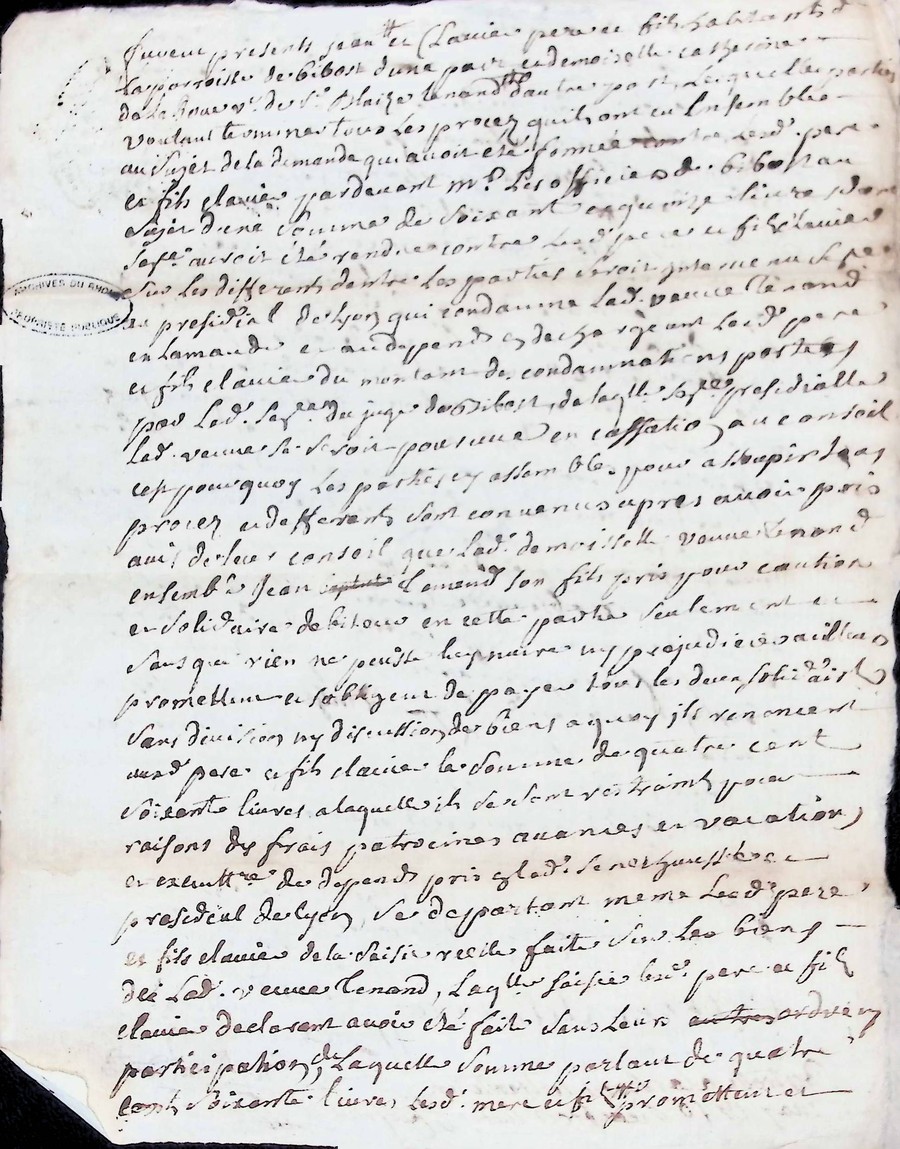 furent presents jean et Clavier pere et fils habitants d
la parroisse de bibost d'une part et demoiselle catherine
de la Roue v.e de S.r Blaize Tenand d'autre part, Lesquelles parties
voulant terminer tous Les procez quil ont eu Ensemble
au Sujet de la demande qui avoit été formée contre Lesd. pere
et fils clavier pardevant m.rs Les officiers de bibost au
Sujet d'une Somme de Soixante et quinze livres
Sef.ce auroit été rendue contre Lesd. pere et fils clavier
Sur Les differents dentre Les parties Seroit intervenu Se
et presidial de Lyon qui condamne Lad. veuve Tenand
en Lamande et au depends en dechargeant Lesd. pere
et fils clavier du montant des condamnations portees
par Lad. Sef.ce du juge de Bibost, de laq.lle Sef.ce presidialle
Lad. veuve Se Seroit pourvue en cassation au conseil
cest pourquoy Les parties assemblées pour assoupir tous
procez et differents sont convenus apres avoir pris
avis de leur conseil que Lad. demoiselle veuve Tenand
ensemble Jean Tenand son fils pris pour caution
et Solidaire debiteur en cette partie Seulement et
Sans que rien ne puisse luy nuire ny prejudicier ailleurs
promettent et sobligent de payer tous les deux solidairement
Sans division ny discution de biens a quoy ils renoncent
auxd. pere et fils clavier la Somme de quatre cent
Soixante livres a laquelle ils se sont restraints pour
raisons des frais patrocines avances et vacations
et executt.re de depends pris en lad. Senechaussée et
presidial de Lyon, Se departant meme Lesd. pere
et fils clavier de la Saisie reelle faite Sur Les biens
de Lad. veuve Tenand, Laq.lle Saisie Lesd. pere et fils
clavier declarent avoir été fait Sans Leurs ordre ny
participation, de Laquelle Somme partant de quatre
cents Soixante livres Lesd. mere et fils promettent et
ARCHIVES DU RHONE
PROPRIÉTÉ PUBLIQUE